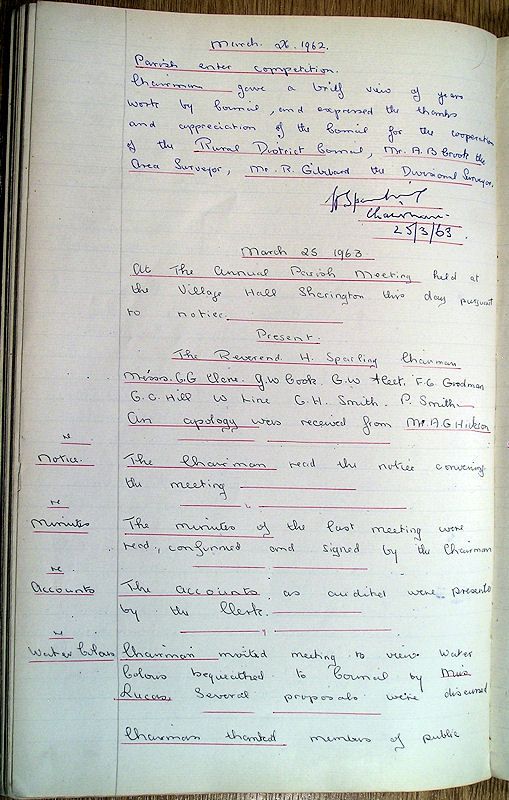 March. 26. 1962.
Parish enter competition.
Chairman gave a brief view of years
work by Council, and expressed the thanks
and appreciation of the Council for the cooperation
of the Rural District Council, Mr. A.B Brook the
Area Surveyor, Mr. R. Gibbard the Divisional Surveyor.
Chairman.
25/3/63.
March 25 1963
At The Annual Parish Meeting held at
the Village Hall Sherington this day pursuant
to notice.
Present.
The Reverend H. Sparling Chairman
Messrs. G.G G.W Cook. G.W Fleet. F.G. Goodman
G.C. Hill W Line C.H. Smith. P. Smith
An apology was received from Mr. A.G Hickson
Notice.
The Chairman read the notice convening
the meeting
Minutes
The minutes of the last meeting were
read, confirmed and signed by the Chairman
Accounts
The accounts as audited were presents
by the Clerk.
Water Colours
Chairman invited meeting to view Water
Colours bequeathed to Council by Miss
Lucas. Several proposals were discussed
Chairman thanked members of public